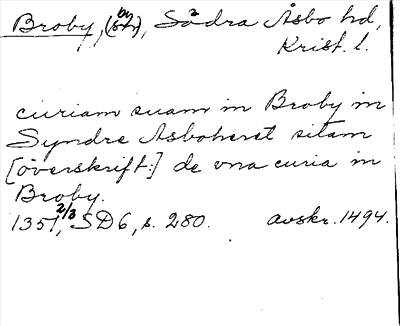 Broby, (by), Södra Åsbo hd,
Krist. l.
curiam suam in Broby in
Syndre Asboheret sitam
[överskrift:] de vna curia in
Broby.
1351, 2/3 SD 6, s. 280. avskr. 1494.